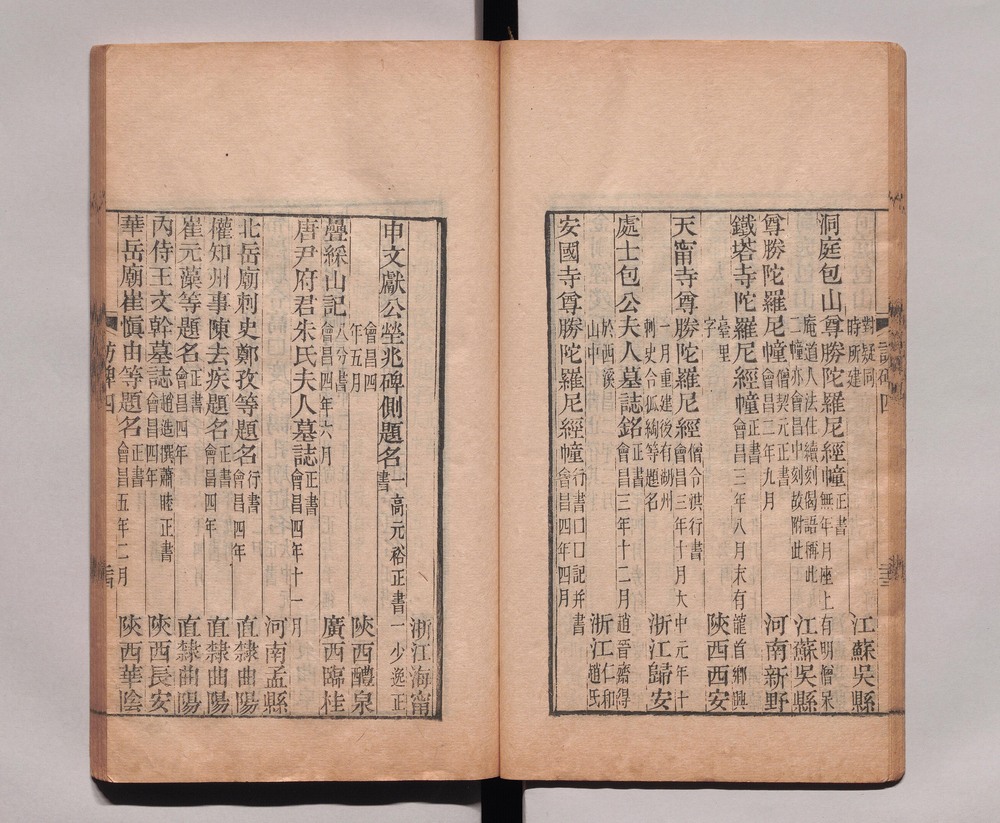 對疑同時所建 江蘇吳縣
洞庭包山尊勝陀羅尼經幢 正書無年月座上有明僧杲
庵道人法住續刻偈語稱此二幢亦會昌中刻故附此 江蘇吳縣
尊勝陀羅尼幢 僧契元正書會昌二年九月 河南新野
鐵塔寺陀羅尼經幢 正書會昌三年八月末有龍首鄉興
臺里字 陝西西安
天甯寺尊勝陀羅尼經 僧令洪行書會昌三年十月大中元年十
一月重建後有湖州刺史令狐綯等題名 浙江歸安
處士包公夫人墓誌銘 正書會昌三年十二月趙晉齋得
於西溪山中 浙江仁和趙氏
安國寺尊勝陀羅尼經幢 行書口口記并書會昌四年四月
浙江海甯
申文獻公塋兆碑側題名 一高元裕正書一少逸正書
會昌四年五月 陝西醴泉
疊綵山記 八分書會昌四年六月 廣西臨桂
唐尹府君朱氏夫人墓誌 正書會昌四年十一月
河南孟縣
北岳廟刺史鄭孜等題名 行書會昌四年 直隸曲陽
權知州事陳去疾題名 正書會昌四年 直隸曲陽
崔元藻等題名 正書會昌四年 直隸曲陽
內侍王文幹墓誌 趙造撰蕭睦正書會昌四年 陝西長安
華岳廟崔慎由等題名 正書會昌五年二月 陝西華陰
訪碑四